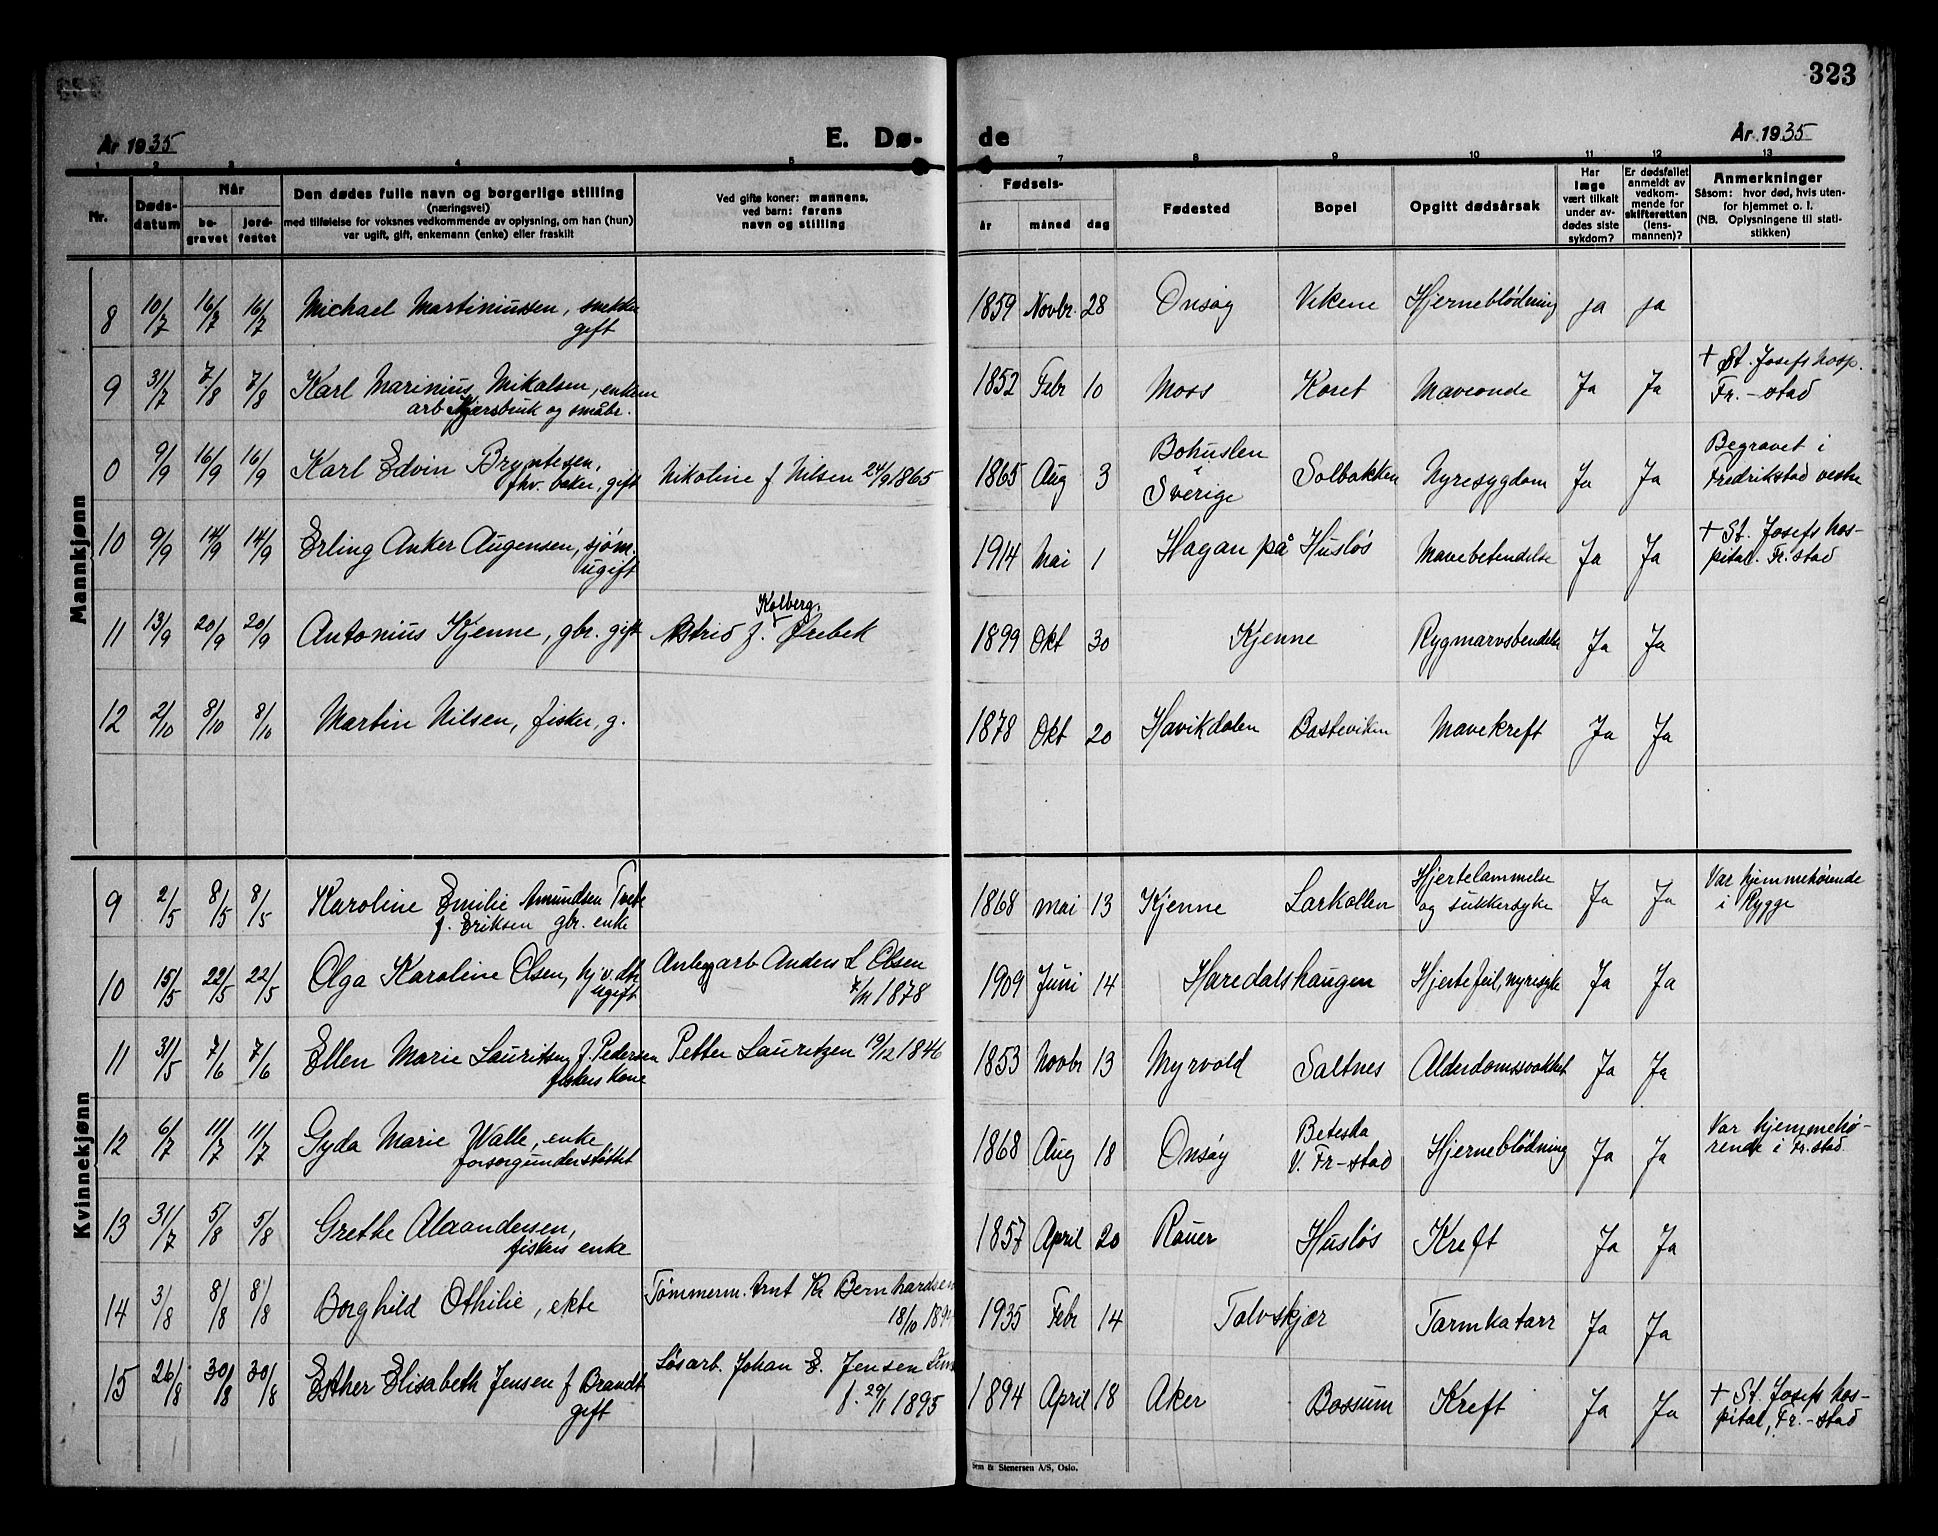 323
År 1935
E. Dø-
de
År 1935
1 2 3 4 5 7 8 9 10 11 12 13
Nr.
Døds-
datum
Når
be-
gravet
jord-
festet
Den dødes fulle navn og borgerlige stilling
(næringsvei)
med tilføielse for voksnes vedkommende av oplysning, om han (hun)
var ugift, gift, enkemann (enke) eller fraskilt
Ved gifte koner: mannens,
ved barn: farens
navn og stilling
Fødsels-
år måned dag
Fødested
Bopel
Opgitt dødsårsak
Har
læge
vært tilkalt
under av-
dødes siste
sykdom?
Er dødsfallet
anmeldt av
vedkom-
mende for
skifteretten
(lens-
mannen)?
Anmerkninger
Såsom: hvor død, hvis uten-
for hjemmet o. l.
(NB. Oplysningene til stati-
stikken)
Mannkjønn
8 10/7 16/7 16/7 Michael Martiniussen, snekker
gift
1859 Novbr. 28 Onsøy Vikene Hjerneblödning ja ja
9 31/7 7/8 7/8 Karl Marinius Mikalsen, enkem
arb Kjærsbruk og småbr.
1852 Febr 10 Moss Koret Mavvonde Ja Ja
+ St. Josefs hosp.
Fr.-stad
0 9/9 16/9 16/9 Karl Edvin Bryntesen,
fhv. baker, gift
Nikoline f Nilsen 24/9 1865
1865 Aug 3
Bohuslen
i
Sverige
Solbakken Nyresygdom Ja Ja
Begravet i
Fredrikstad vestre
10 9/9 14/9 14/9 Erling Anker Augensen, sjøm.
ugift
1914 Mai 1 Hagan på Husløs Mavebetendelse Ja Ja
+ St. Josefs hos-
pital. Fr.stad
11 13/9 20/9 20/9 Antonius Kjenne, gbr. gift
Kolberg,
Astrid f. Ørebek
1899 Okt 30 Kjenne Rygmarvsbendelse Ja Ja
12 2/10 8/10 8/10 Martin Nilsen, fisker, g.
1878 Okt 20 Havikdalen Basteviken Mavekreft Ja Ja
Kvinnekjønn
9 2/5 8/5 8/5 Karoline Emilie Amundsen Tvete
f. Eriksen gbr. enke
1868 mai 13 Kjenne Larkollen
Hjertelammelse
og sukkersyke
Ja Ja
Var hjemmehørende
i Rygge
10 15/5 22/5 22/5 Olga Karoline Olsen, hj.v. dtr
ugift
Anleggarb Anders L Olsen
/11 1878
1909 Juni 14 Haredalshaugen Hjertefeil, nyresyke Ja Ja
11 31/5 7/6 7/6 Ellen Marie Lauritsen f. Pedersen
fiskers kone
Petter Lauritzen 19/12 1846
1853 Novbr 13 Myrvold Saltnes Alderdomssvakhet Ja Ja
12 6/7 11/7 11/7 Gyda Marie Walle, enke
forsorgunderstöttet
1868 Aug 18 Onsøy
Beteska
V. Fr-stad
Hjerneblödning Ja Ja
Var hjemmehø-
rende i Fr.stad
13 31/7 5/8 5/8 Grethe Alexandersen,
fiskers enke
1857 April 20 Rauer Husløs Kreft Ja Ja
14 3/8 8/8 8/8 Borghild Othilie, ekte
Tømmerm. Arnt Kr Bernhardsen
18/10 189
1935 Febr 14 Talvskjær Tarmkatarr Ja Ja
15 26/8 30/8 30/8 Esther Elisabeth Jensen f Brandt
gift
Løsarb. Johan E. Jensen
f. 29/1 1895
1894 April 18 Aker Bossum Kreft Ja Ja
+ St. Josefs hos-
pital, Fr.-stad
Sem & Stenersen A/S, Oslo.